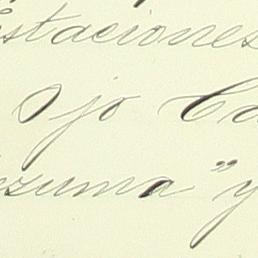 staciones
Ojo Ca
zuma" y